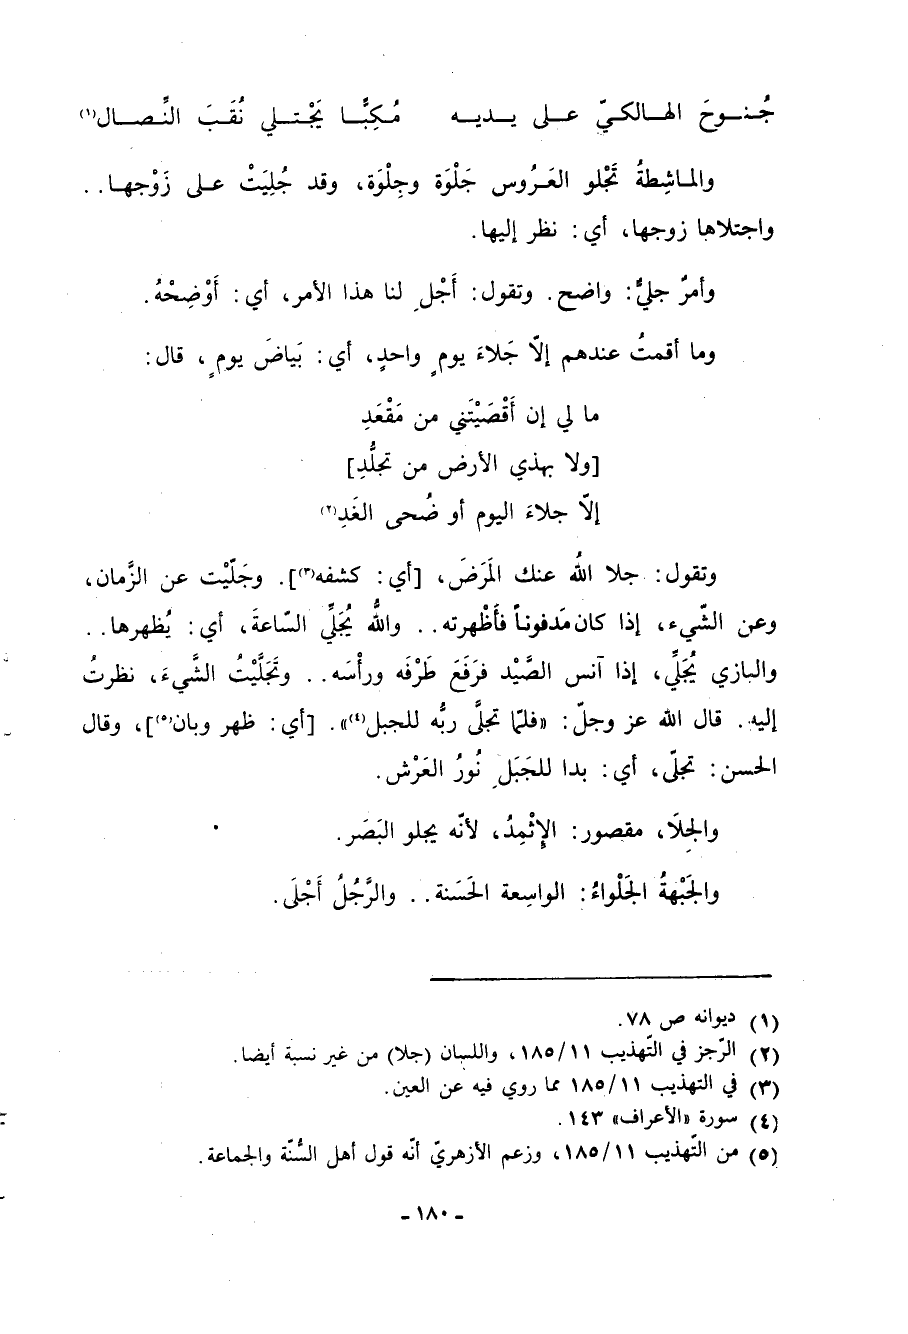 جُنـوحَ الهـالكيّ عـلى يـديـه    مُكِبًّـا يَجْتـلي نُقَبَ النِّصـال(١)
والماشِطةُ تَجْلو العَرُوس جَلْوَة وجِلْوَة، وقد جُلِيَتْ على زَوْجها..
واجتلاها زوجها، أي: نظر إليها.
وأمرٌ جليٌّ: واضح. وتقول: أَجْلِ لنا هذا الأمر، أي: أَوْضِحْهُ.
وما أقمتُ عندهم إلاّ جَلاءَ يومٍ واحدٍ، أي: بَياضَ يومٍ، قال:
ما لي إن أَقْصَيْتَني من مَقْعَدِ
[ولا بهذي الأرض من تجلُّدِ]
إلاّ جلاءَ اليوم أو ضُحى الغَدِ(٢)
وتقول: جلا اللهُ عنك المَرَضَ، [أي: كشفه(٣)]. وجَلّيْت عن الزَّمان،
وعن الشّيء، إذا كان مَدفوناً فأَظْهرته.. واللهُ يُجَلِّي السّاعةَ، أي: يُظهرها..
والبازي يُجَلِّي، إذا آنس الصَّيْد فرَفَعَ طَرْفَه ورأْسَه.. وتَجَلَّيْتُ الشَّيءَ، نظرتُ
إليه. قال الله عز وجلّ: «فلمّا تجلَّى ربُّه للجبل(٤)». [أي: ظهر وبان(٥)]، وقال
الحسن: تجلّى، أي: بدا للجَبَلِ نُورُ العَرْش.
والجِلَا، مقصور: الإِثْمِدُ، لأنّه يجلو البَصَر.
والجَبْهةُ الجَلْواءُ: الواسِعة الحَسَنة.. والرَّجُلُ أَجْلَى.
(١) ديوانه ص ٧٨.
(٢) الرّجز في التّهذيب ١٨٥/١١، واللسان (جلا) من غير نسبة أيضا.
(٣) في التهذيب ١٨٥/١١ مما روي فيه عن العين.
(٤) سورة «الأعراف» ١٤٣.
(٥) من التّهذيب ١٨٥/١١، وزعم الأزهريّ أنّه قول أهل السُّنّة والجماعة.
- ١٨٠ -